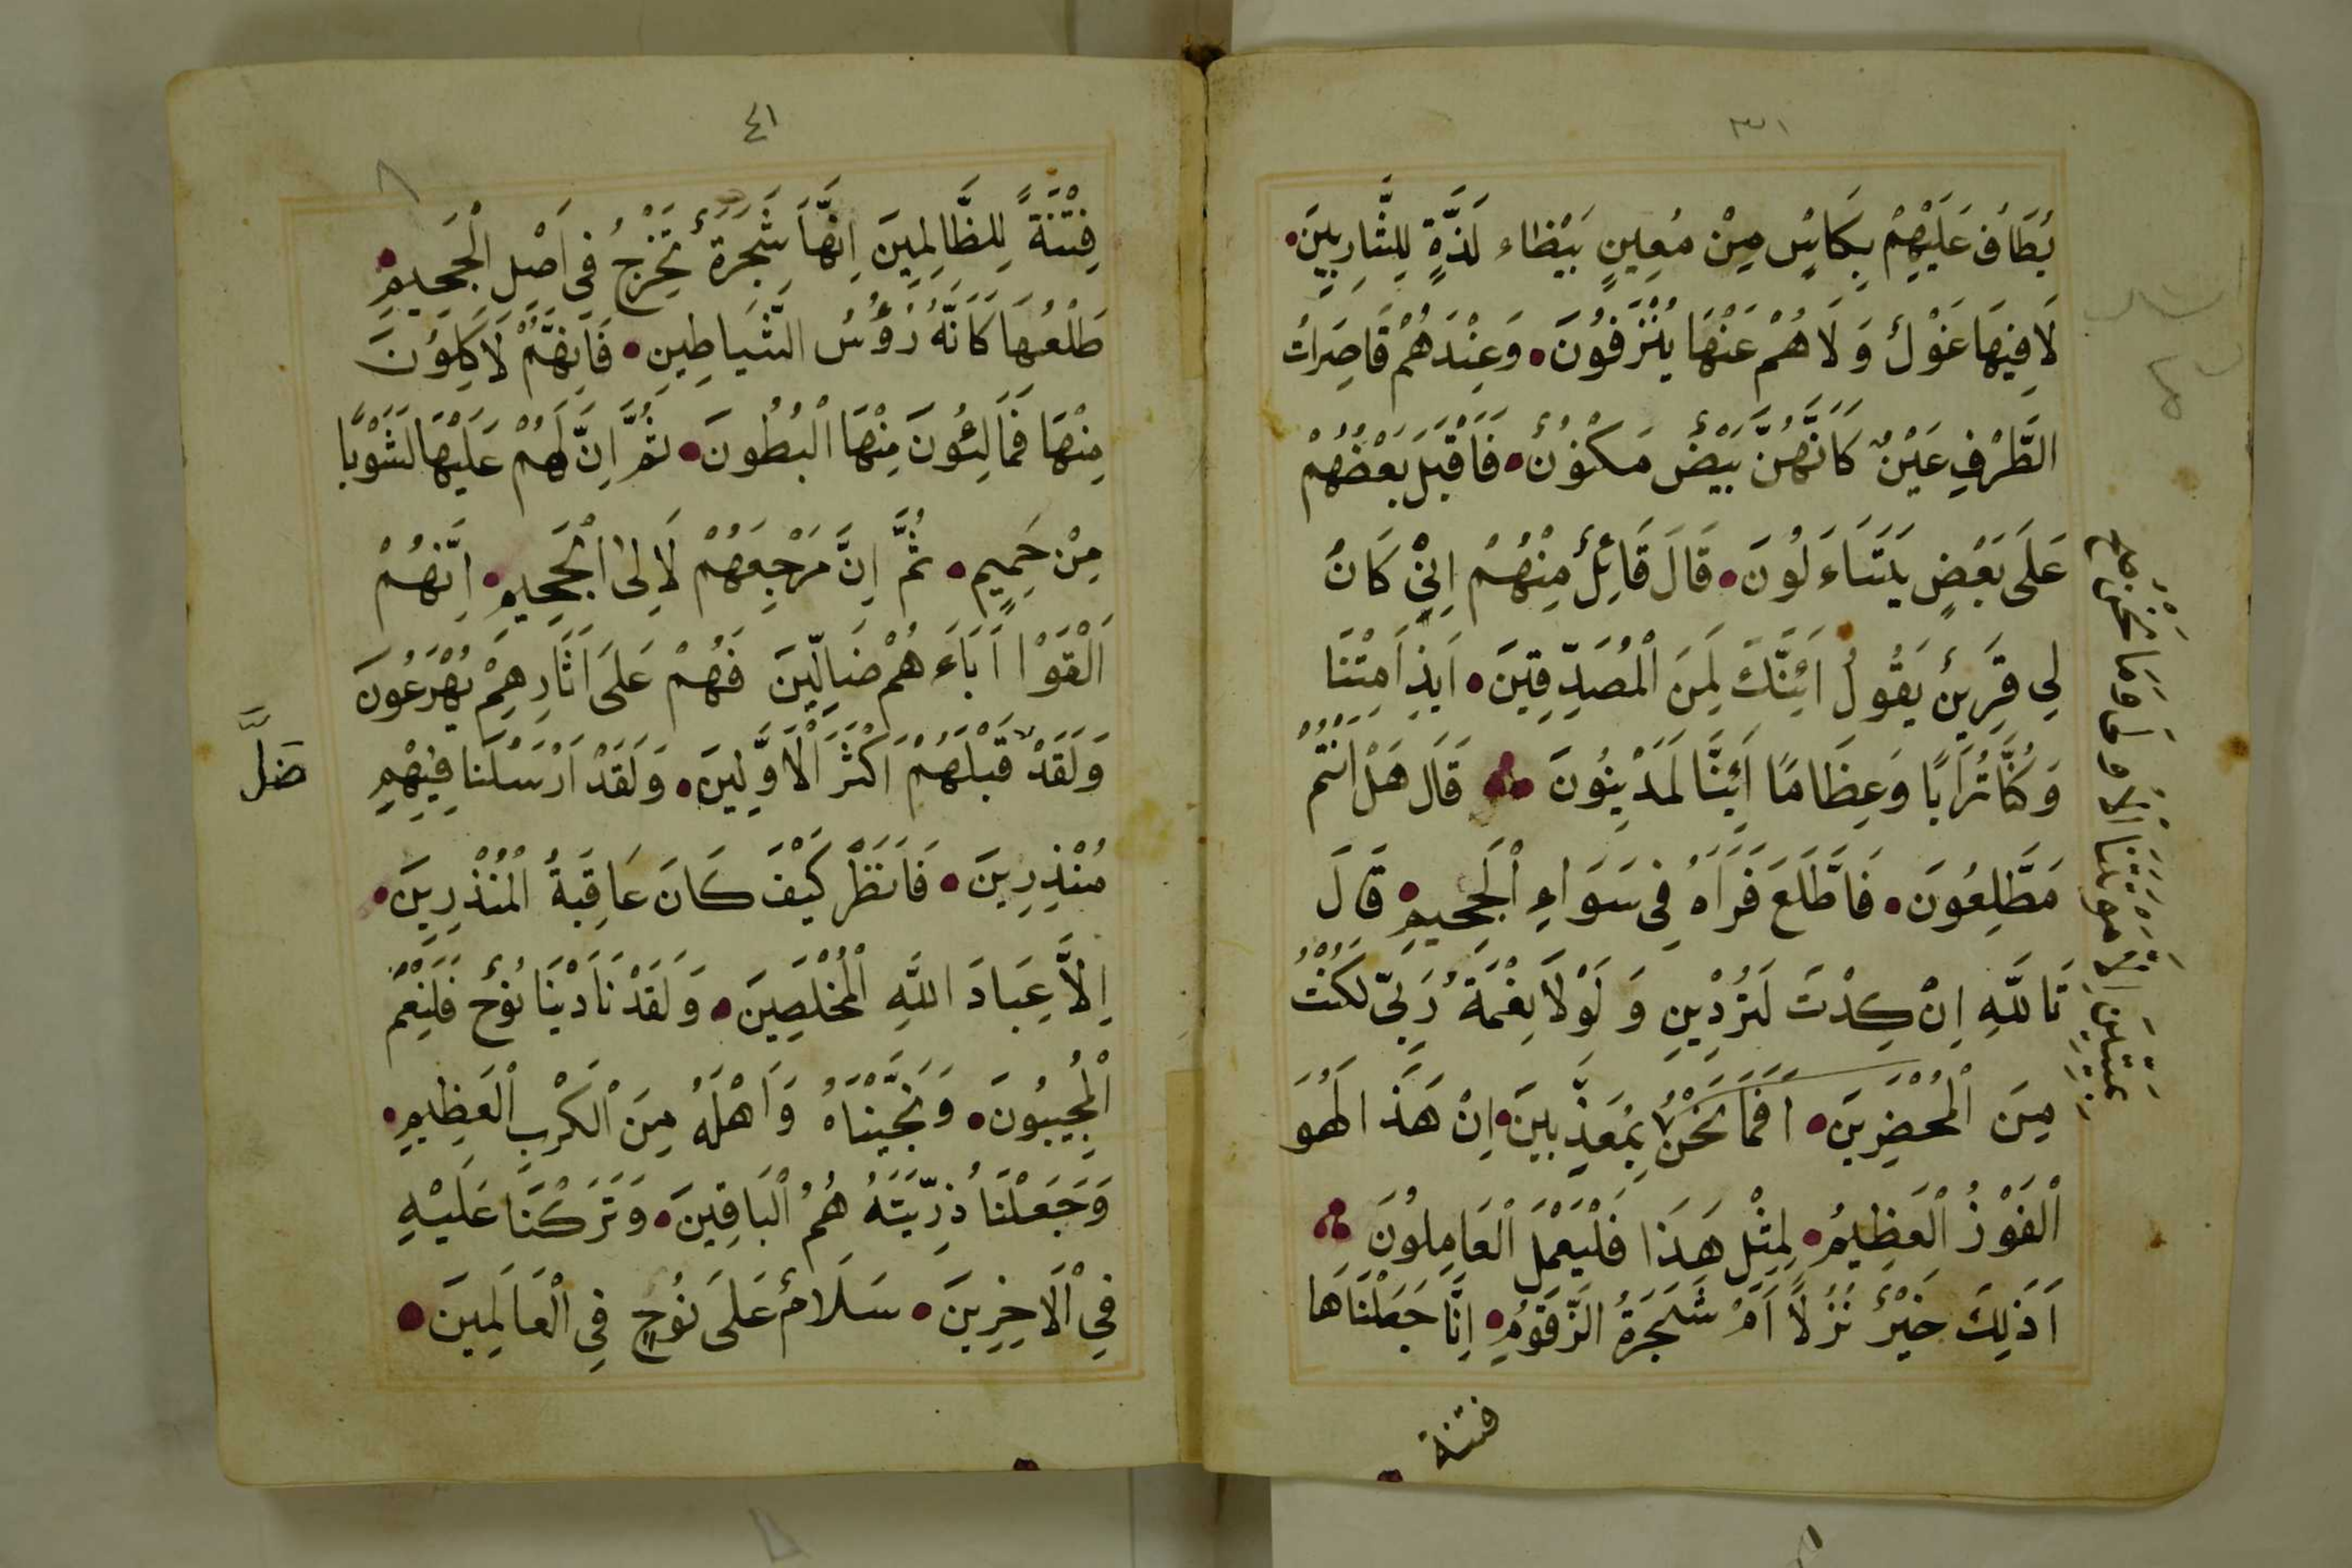 ١٣
يُطَافُ عَلَيْهِمْ بِكَاسٍ مِنْ مُعِينٍ بَيْظاء لَذَّةٍ لِلشَّارِبِينَ
لَا فِيهَا غَوْلٌ وَلَا هُمْ عَنْهَا يُنْزَفُونَ وَعِنْدَهُمْ قَاصِرَاتُ
الطَّرْفِ عَيْنٌ كَاَنَّهُنَّ بَيْضٌ مَكْنُونٌ فَاَقْبَلَ بَعْضُهُمْ
عَلَى بَعْضٍ يَتَسَاءَلُونَ قَالَ قَائِلٌ مِنْهُمْ اِنِّي كَانَ
لِي قَرِينٌ يَقُولُ اَئِنَّكَ لَمِنَ الْمُصَدِّقِينَ اَيِذَا مِتْنَا
وَكُنَّا تُرَابًا وَعِظَامًا اَئِنَّا لَمَدْيِنُونَ قَالَ هَلْ اَنْتُمْ
مَطَّلِعُونَ فَاَطَّلَعَ فَرَاَهُ فِي سَوَاءِ الْجَحِيمِ قَالَ
تَاللَّهِ اِنْ كِدْتَ لَتُرْدِينِ وَلَوْلَا نِعْمَةُ رَبِّي لَكُنْتُ
مِنَ الْمُحْضَرِينَ اَفَمَا نَحْنُ بِمُعَذَّبِينَ اِنَّ هَذَا لَهُوَ
الْفَوْزُ الْعَظِيمُ لِمِثْلِ هَذَا فَلْيَعْمَلِ الْعَامِلُونَ
اَذَلِكَ خَيْرٌ نُزُلًا اَمْ شَجَرَةُ الزَّقُّومِ اِنَّا جَعَلْنَاهَا
فتنة
بميتين الا موتتنا الاولى وما نحن
١٤
فِتْنَةً لِلظَّالِمِينَ اِنَّهَا شَجَرَةٌ تَخْرُجُ فِي اَصْلِ الْجَحِيمِ
طَلْعُهَا كَاَنَّهُ رُؤُسُ الشَّيَاطِينِ فَاِنَّهُمْ لَاَكِلُونَ
مِنْهَا فَمَالِئُونَ مِنْهَا الْبُطُونَ ثُمَّ اِنَّ لَهُمْ عَلَيْهَا لَشَوْبًا
مِنْ حَمِيمٍ ثُمَّ اِنَّ مَرْجِعَهُمْ لَاِلَى الْجَحِيمِ اِنَّهُمْ
اَلْقَوْا اَبَاءَهُمْ ضَالِّينَ فَهُمْ عَلَى اَثَارِهِمْ يُهْرَعُونَ
وَلَقَدْ قَبْلَهُمْ اَكْثَرَ الْاَوَّلِينَ وَلَقَدْ اَرْسَلْنَا فِيهِمْ
ضَلَّ
مُنْذِرِينَ فَانْظُرْ كَيْفَ كَانَ عَاقِبَةُ الْمُنْذَرِينَ
اِلَّا عِبَادَ اللَّهِ الْمُخْلَصِينَ وَلَقَدْ نَادَيْنَا نُوحٌ فَلَنِعْمَ
الْمُجِيبُونَ وَنَجَّيْنَاهُ وَاَهْلَهُ مِنَ الْكَرْبِ الْعَظِيمِ
وَجَعَلْنَا ذُرِّيَّتَهُ هُمُ الْبَاقِينَ وَتَرَكْنَا عَلَيْهِ
فِي الْاَخِرِينَ سَلَامٌ عَلَى نُوحٍ فِي الْعَالَمِينَ